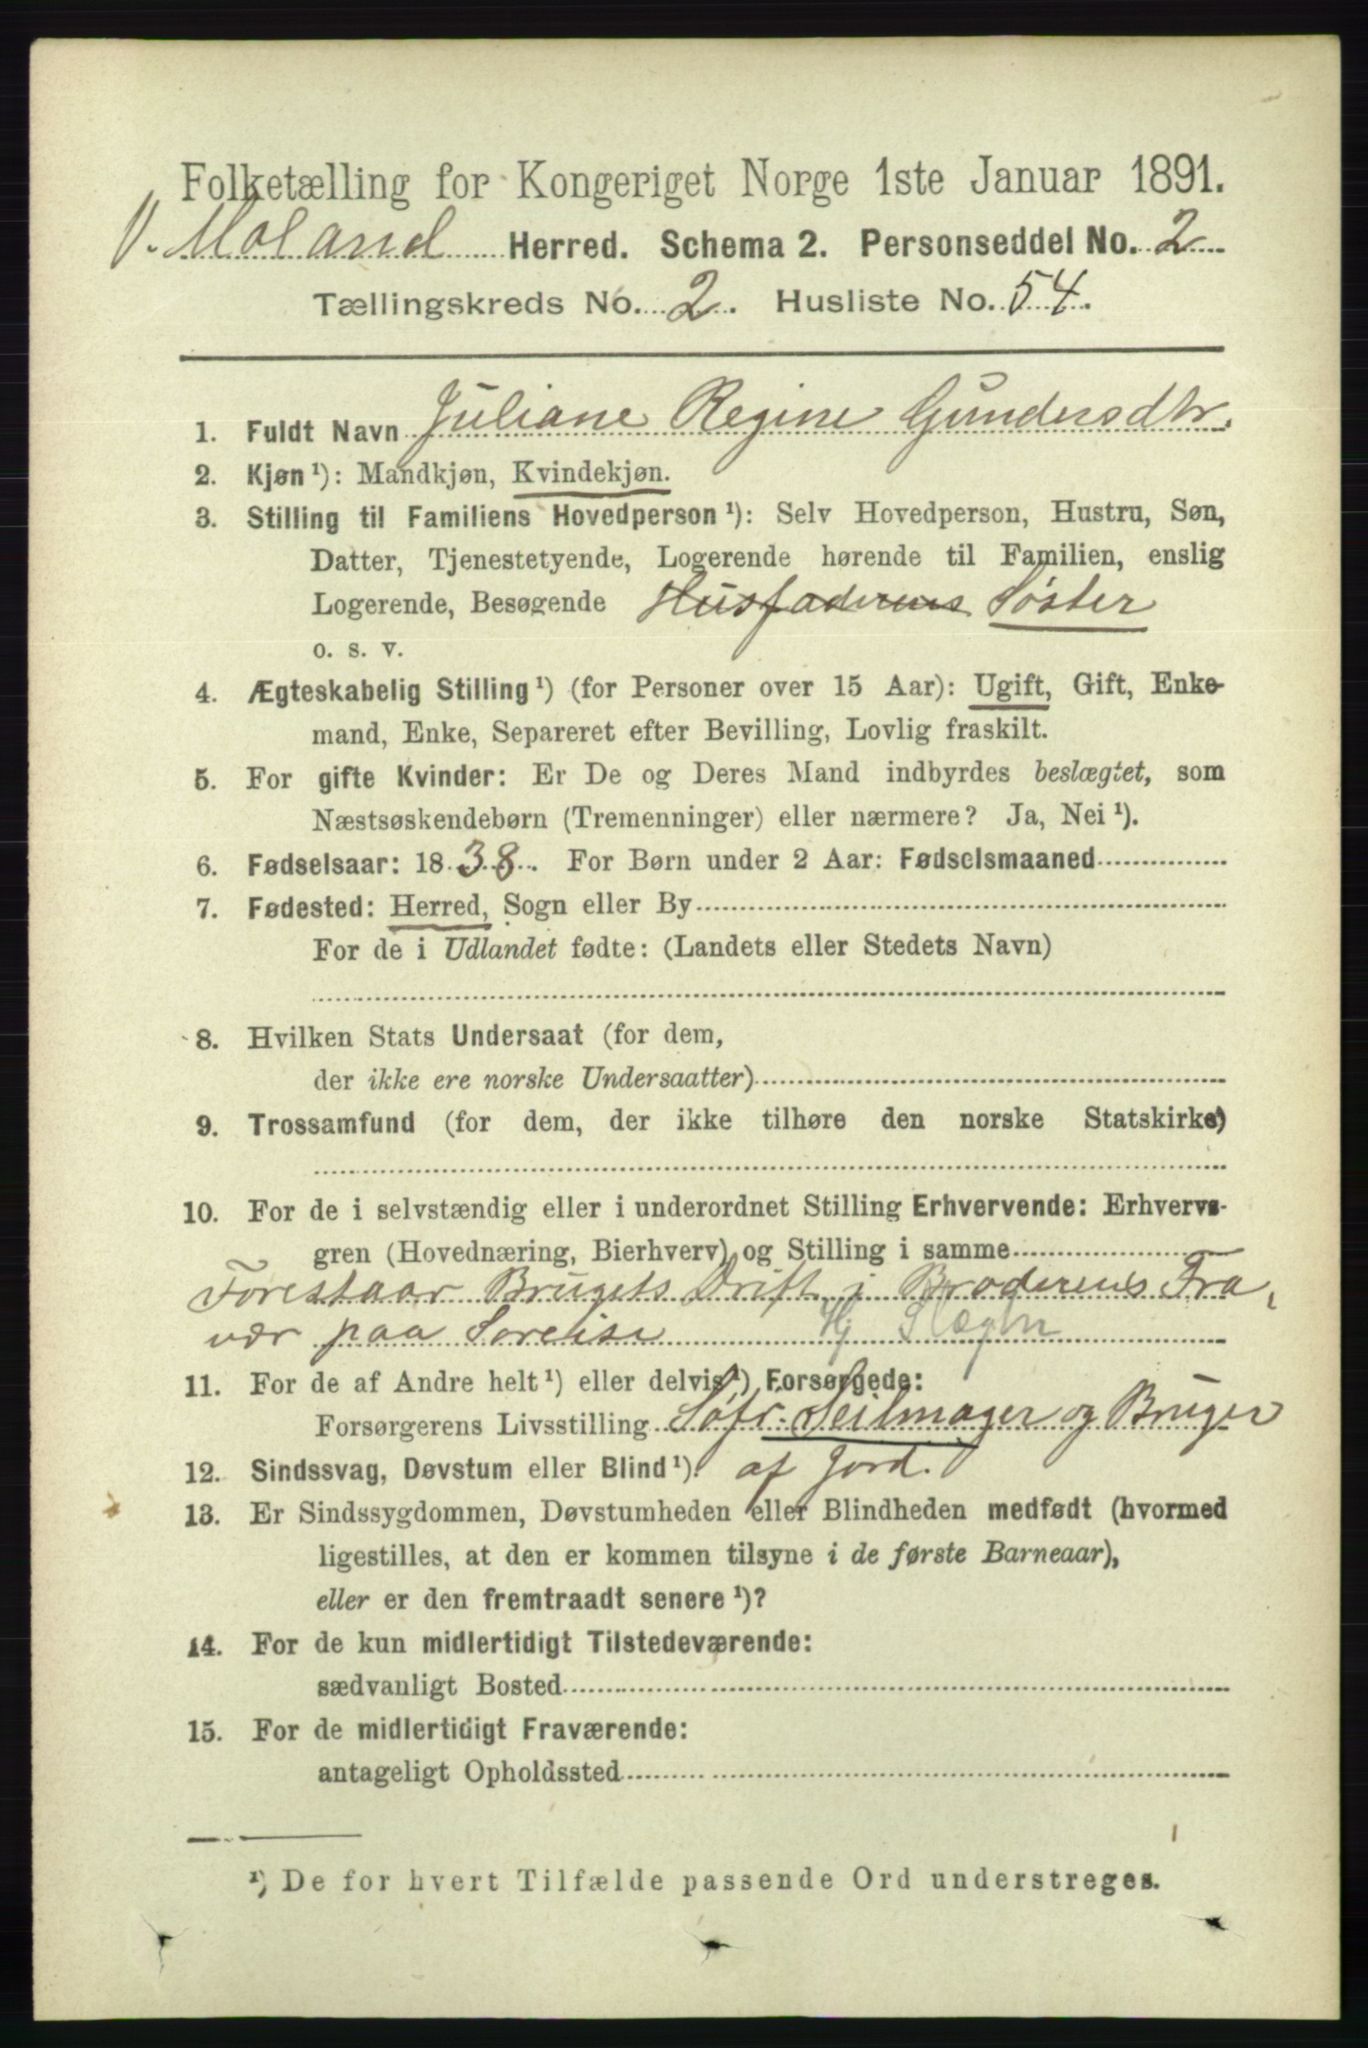 Folketælling for Kongeriget Norge 1ste Januar 1891.
V. Moland Herred. Schema 2. Personseddel No. 2
Tællingskreds No. 2. Husliste No. 54.
1. Fuldt Navn Juliane Regine Gundersdtr.
2. Kjøn¹): Mandkjøn, Kvindekjøn.
3. Stilling til Familiens Hovedperson¹): Selv Hovedperson, Hustru, Søn,
Datter, Tjenestetyende, Logerende hørende til Familien, enslig
Logerende, Besøgende Husfaderens Søster
o. s. v.
4. Ægteskabelig Stilling¹) (for Personer over 15 Aar): Ugift, Gift, Enke-
mand, Enke, Separeret efter Bevilling, Lovlig fraskilt.
5. For gifte Kvinder: Er De og Deres Mand indbyrdes beslægtet, som
Næstsøskendebørn (Tremenninger) eller nærmere? Ja, Nei¹).
6. Fødselsaar: 1838. For Børn under 2 Aar: Fødselsmaaned
7. Fødested: Herred, Sogn eller By
For de i Udlandet fødte: (Landets eller Stedets Navn)
8. Hvilken Stats Undersaat (for dem,
der ikke ere norske Undersaatter)
9. Trossamfund (for dem, der ikke tilhøre den norske Statskirke)
10. For de i selvstændig eller i underordnet Stilling Erhvervende: Erhvervs-
gren (Hovednæring, Bierhverv) og Stilling i samme
Forestaar Brugets Drift i Broderens Fra-
vær paa Søreise Hj
11. For de af Andre helt¹) eller delvis¹) Forsørgede:
Forsørgerens Livsstilling Søfr. Seilmager og Bruger
12. Sindssvag, Døvstum eller Blind¹). af Jord.
13. Er Sindssygdommen, Døvstumheden eller Blindheden medfødt (hvormed
ligestilles, at den er kommen tilsyne i de første Barneaar),
eller er den fremtraadt senere¹)?
14. For de kun midlertidigt Tilstedeværende:
sædvanligt Bosted
15. For de midlertidigt Fraværende:
antageligt Opholdssted
¹) De for hvert Tilfælde passende Ord understreges.